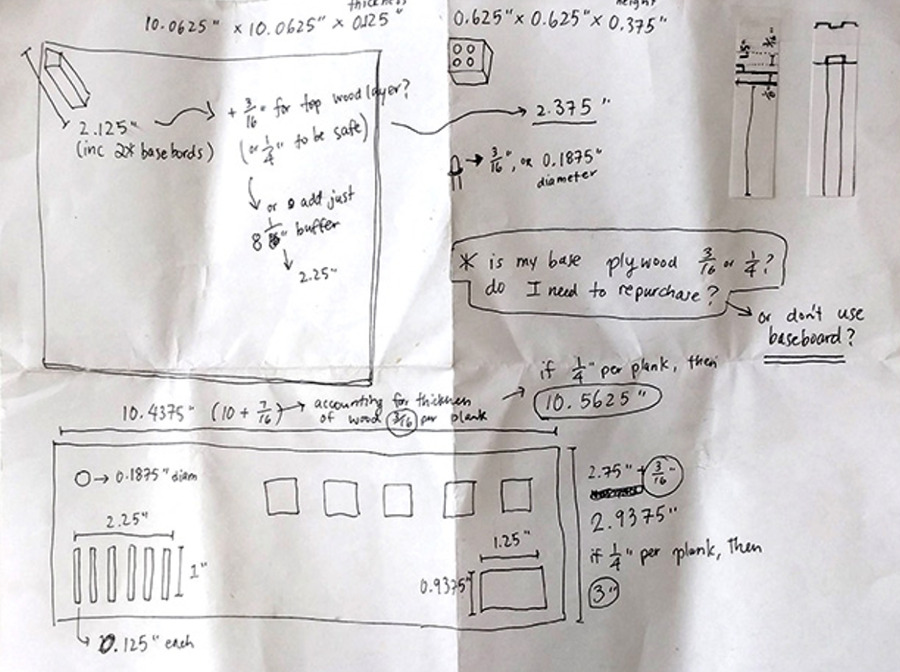 thickness
10.0625" × 10.0625" × 0.125"
height
0.625" × 0.625" × 0.375"
2.125"
(inc 2* basebords)
+ 3/16" for top wood layer?
(or 1/4" to be safe)
or add just
1/8" buffer
2.25"
2.375"
3/16", or 0.1875"
diameter
* is my base plywood 3/16 or 1/4?
do I need to repurchase?
or don't use
baseboard?
if 1/4" per plank, then
10.5625"
10.4375" (10 + 7/16) → accounting for thickness
of wood 3/16 per plank
0.1875" diam
2.25"
1"
0.125" each
1.25"
0.9375"
2.75" + 3/16"
2.9375"
if 1/4" per plank, then
3"